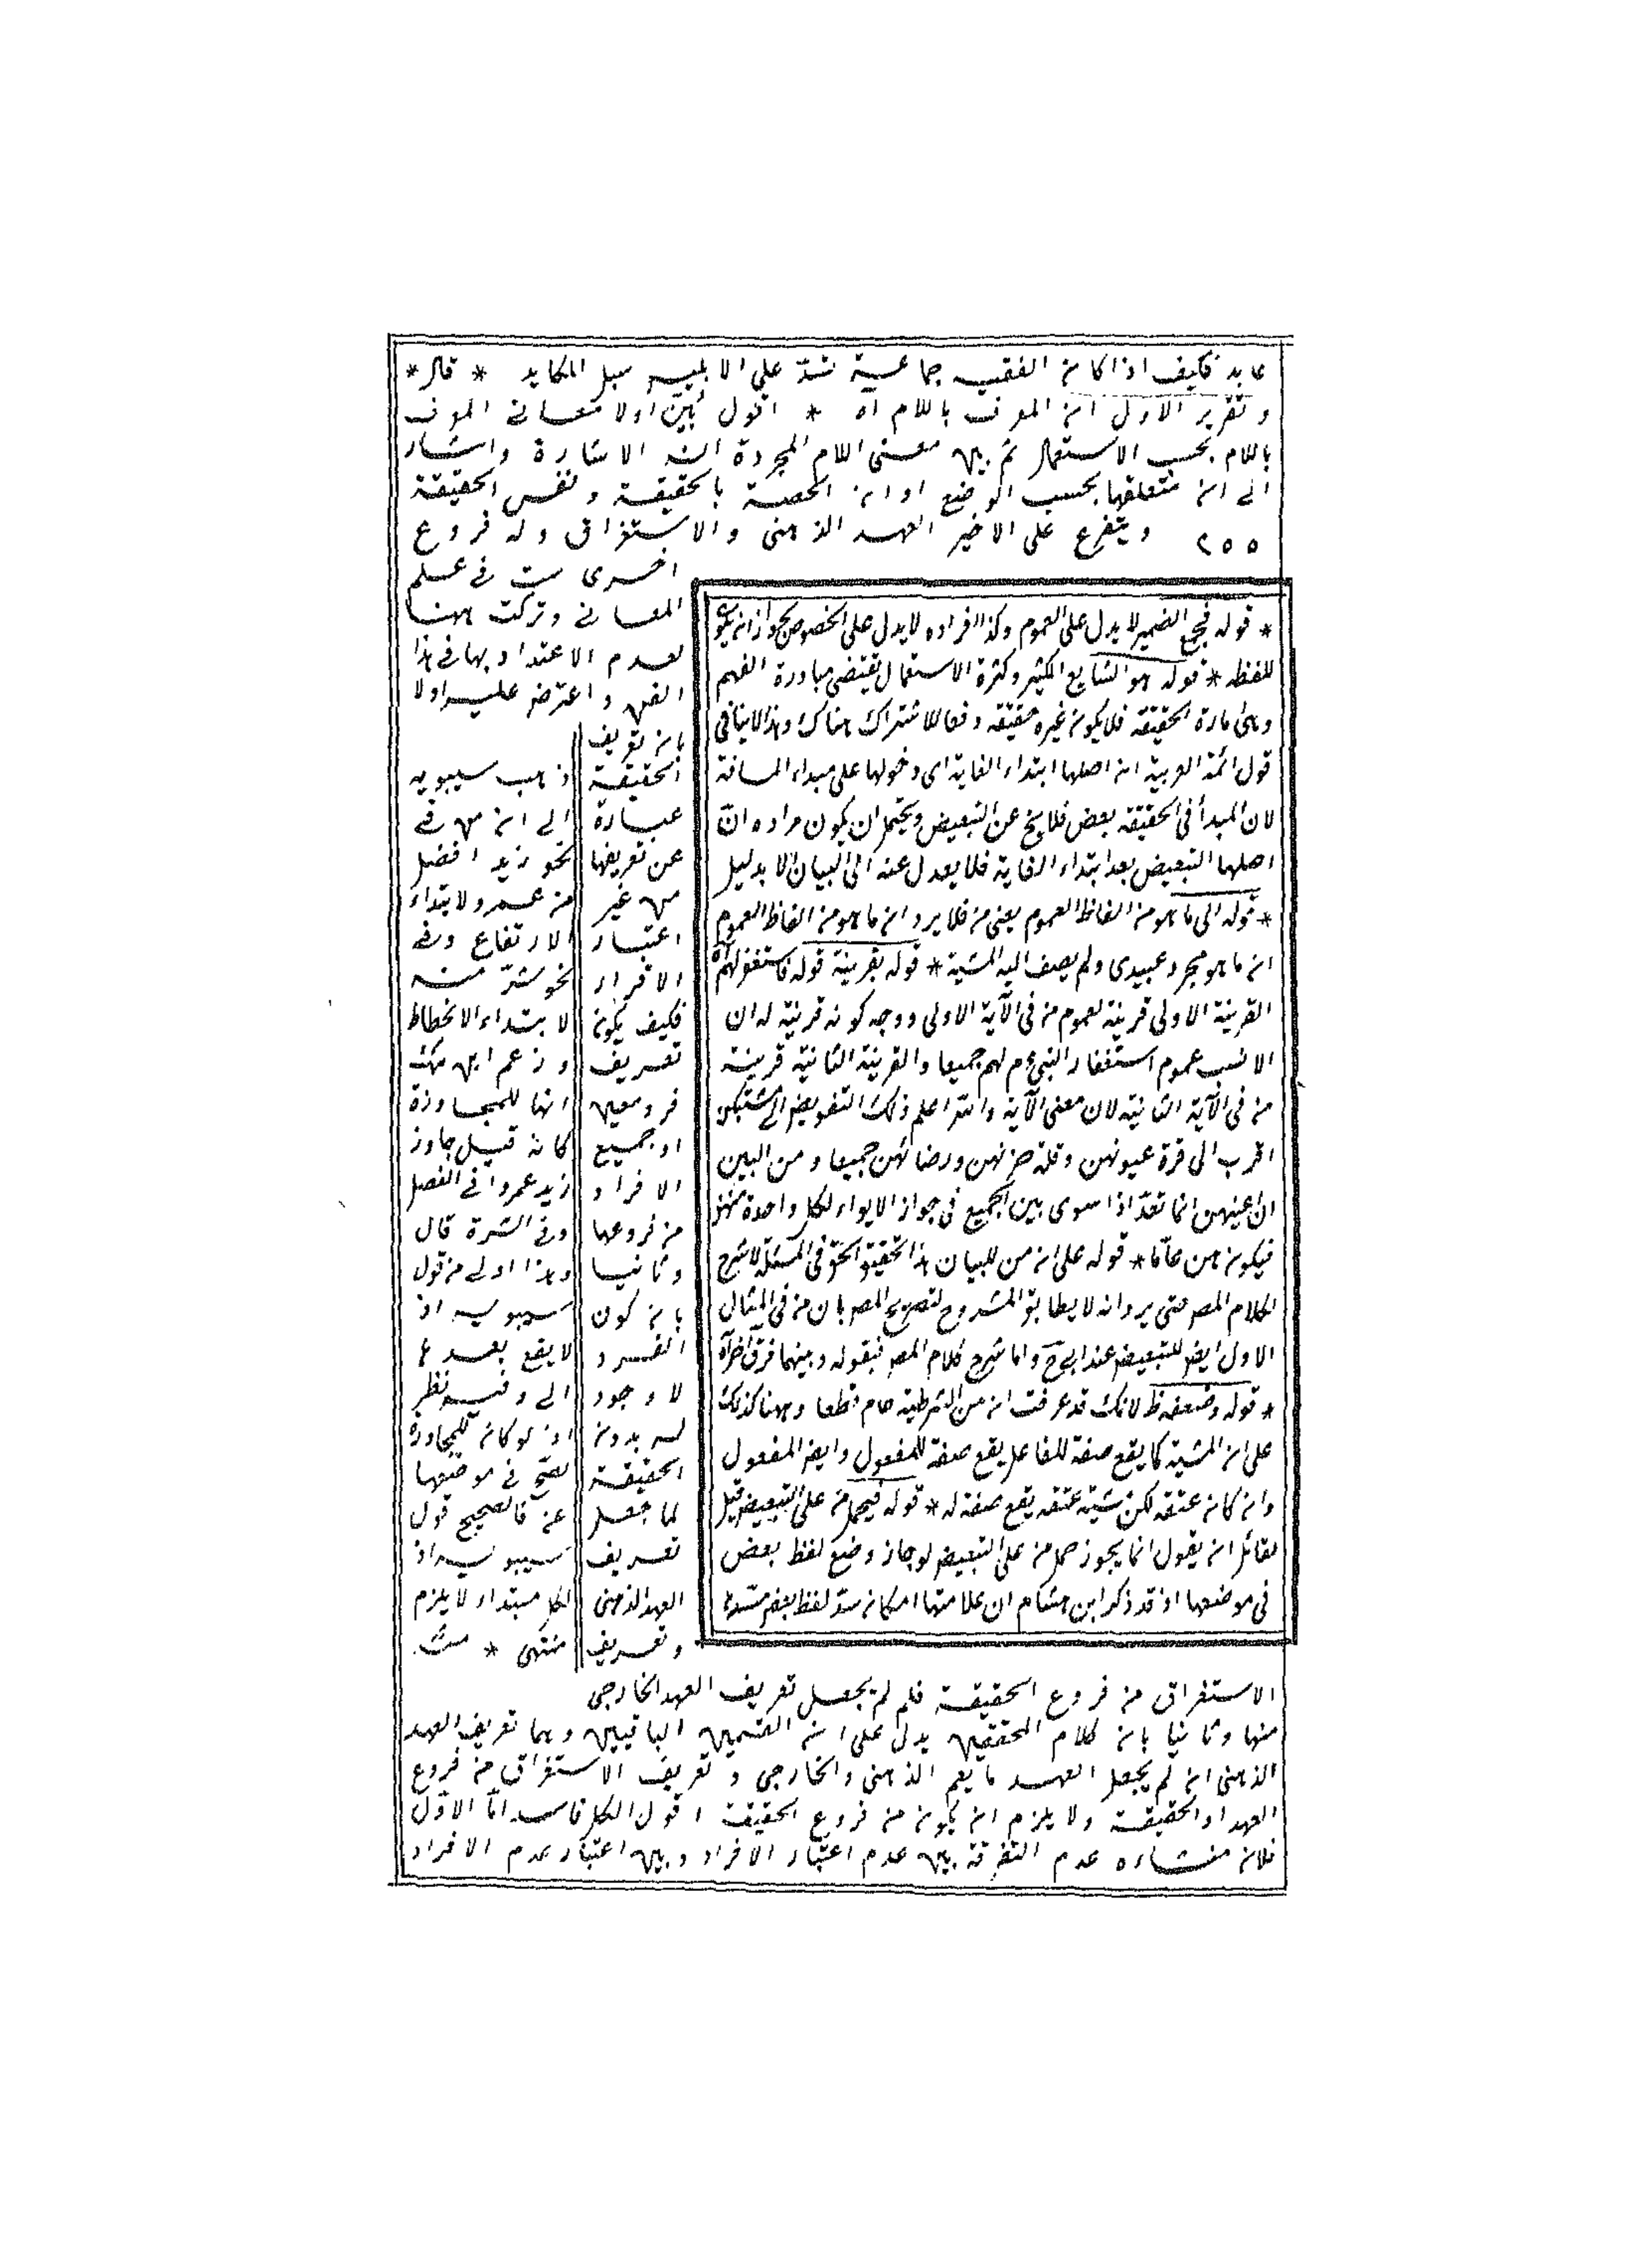 عابد فكيف اذا كان الفقيه جماعة شدّ على الابليس سبل المكايد * قال *
وتقرير الاول ان المعرف باللام آه * اقول بيّن اولا معانى المعرف
باللام بحسب الاستعمال ثم بين معنى اللام المجردة انه الاشارة واشار
الى ان متعلقها بحسب الوضع اوان الحصة بالحقيقة ونفس الحقيقة
٢٥٥ ويتفرع على الاخير العهد الذهنى والاستغراق وله فروع
اخرى فى علم
المعانى وتركت ههنا
لعدم الاعتداد بها فى هذا
الفن واعترض عليه اولا
بان تعريف
الحقيقة
عبارة
عن تعريفها
من غير
اعتبار
الافراد
فكيف يكون
تعريف
فرد معين
او جميع
الافراد
من فروعها
وثانيا
بان كون
الفرد
لا وجود
له بدون
الحقيقة
لما جعل
تعريف
العهد الذهنى
وتعريف
الاستغراق من فروع الحقيقة فلم لم يجعل تعريف العهد الخارجى
منها وثانيا بان كلام المحققين يدل على ان القسمين الباقيين وهما تعريف العهد
الذهنى ان لم يجعل العهد ما يعم الذهنى والخارجى وتعريف الاستغراق من فروع
العهد او الحقيقة ولا يلزم ان يكون من فروع الحقيقة اقول الكل فاسد امّا الاوّل
فلان منشاءه عدم التفرقة بين عدم اعتبار الافراد وبين اعتبار عدم الافراد
* قوله فجمع الضمير لا يدل على العموم وكذا افراده لا يدل على الخصوص لجواز ان يكون
للفظه * قوله هو الشايع الكثير وكثرة الاستعمال تقتضى مبادرة الفهم
وهى امارة الحقيقة فلا يكون غيره حقيقة دفعا للاشتراك هناك وهذا لا ينافى
قول ائمة العربية ان اصلها ابتداء الغاية اى دخولها على مبداء المسافة
لان المبدأ فى الحقيقة بعض فلا يخ عن التبعيض ويحتمل ان يكون مراده انّ
اصلها التبعيض بعد ابتداء الغاية فلا يعدل عنه الى البيان الا بدليل
* قوله الى ما هو من الفاظ العموم يعنى من فلا يرد ان ما هو من الفاظ العموم
ان ما هو مجرد عبيدى ولم يضف اليه المشية * قوله بقرينة قوله فاستغفر لهم آه
القرينة الاولى قرينة لعموم من فى الآية الاولى ووجه كونه قرينة له ان
الانسب عموم استغفار النبى عم لهم جميعا والقرينة الثانية قرينة
من فى الآية الثانية لان معنى الآية والله اعلم ذلك التفويض الى مشيتك
اقرب الى قرة عيونهن وقلة حزنهن ورضائهن جميعا ومن البين
ان عينهن انما تقر اذا سوى بين الجميع فى جواز الايواء لكل واحدة منهن
فيكون من عاما * قوله على ان من للبيان هذا تحقيق الحق فى المسئلة لا شرح
لكلام المصر حتى يرد انه لا يطابق المشروح لتصريح المصر بان من فى المثال
الاول ايضا للتبعيض عند ابى ح واما شرح كلام المصر فبقوله وبينهما فرق آخر آه
* قوله وضعفه ظ لانك قد عرفت ان من الشرطية عام قطعا وههنا كذلك
على ان المشية كما يقع صفة للفاعل يقع صفة للمفعول وايضا المفعول
وان كان عتقه لكن مشية عتقه يقع صفة له * قوله فيحمل من على التبعيض قيل
لقائل ان يقول انما يجوز حمل من على التبعيض لو جاز وضع لفظ بعض
فى موضعها اذ قد ذكر ابن هشام ان علامتها امكان سدّ لفظ بعض مسدها
ذهب سيبويه
الى ان من فى
نحو زيد افضل
من عمرو لابتداء
الارتفاع وفى
نحو شرّ منه
لابتداء الانحطاط
وزعم ابن مالك
انها للمجاوزة
كانه قيل جاوز
زيد عمروا فى الفضل
وفى الشرة قال
وهذا اولى من قول
سيبويه اذ
لا يقع بعدها
الى وفيه نظر
اذ لو كان للمجاوزة
لصحّ فى موضعها
عن فالصحيح قول
سيبويه اذ
لكل مبتداء لا يلزم
منتهى * منه